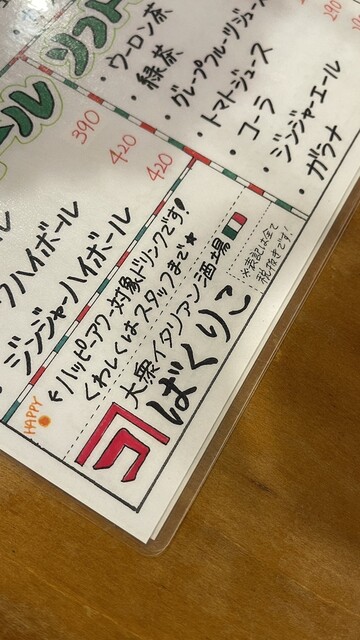 ール
ソフト
・ウーロン茶
・緑茶
・グレープフルーツジュース
・トマトジュース
・コーラ
・ジンジャーエール
・ガラナ
290
390
420
420
ハイボール
ジンジャーハイボール
HAPPY
←ハッピーアワー対象ドリンクです!
くわしくはスタッフまで★
大衆イタリアン酒場
ばくりこ
※表記は全て
税抜きです!